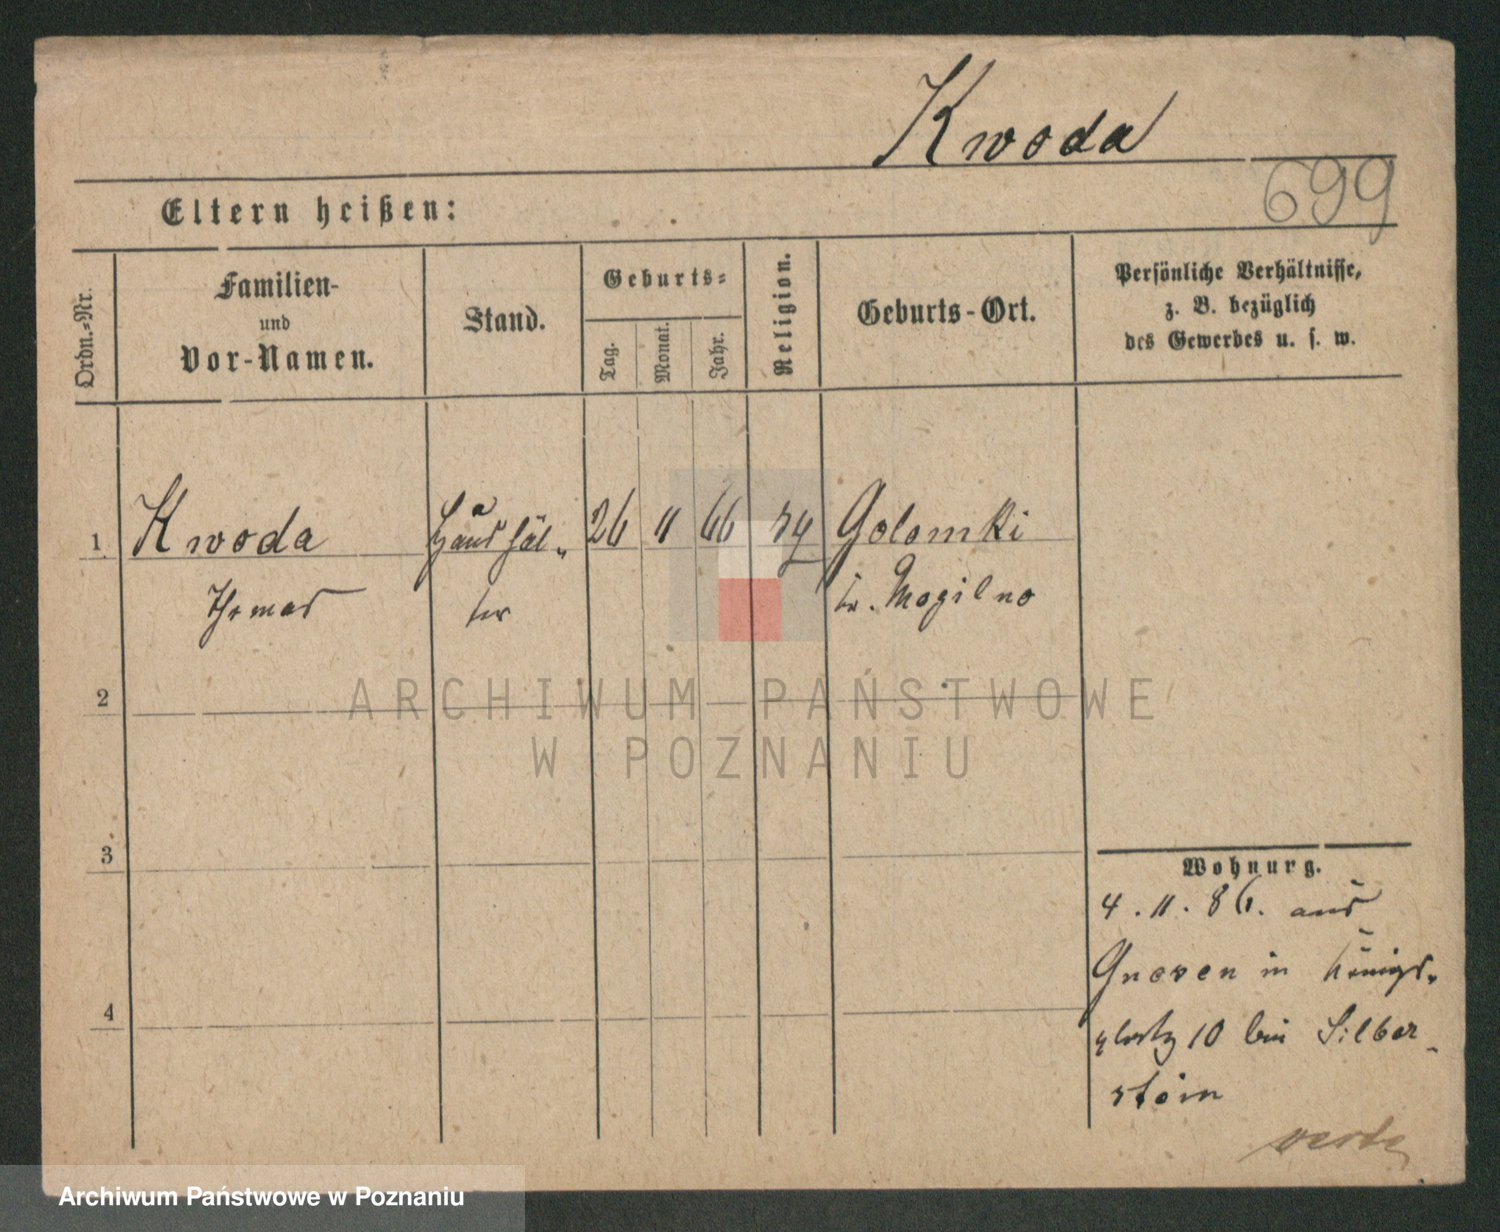 Kwoda
699
Eltern heißen:
Ordn.-Nr.
Familien-
und
Vor-Namen.
Stand.
Geburts-
Tag.
Monat.
Jahr.
Religion.
Geburts-Ort.
Persönliche Verhältnisse,
z. B. bezüglich
des Gewerbes u. s. w.
1 Kwoda Haushäl- 26 11 66 Golomki
Thomas ter Kr. Mogilno
2
3
4
Wohnung.
4. 11. 86. aus
Gnesen in Königs-
platz 10 bei Silber-
stein
verte
ARCHIWUM PAŃSTWOWE
W POZNANIU
Archiwum Państwowe w Poznaniu